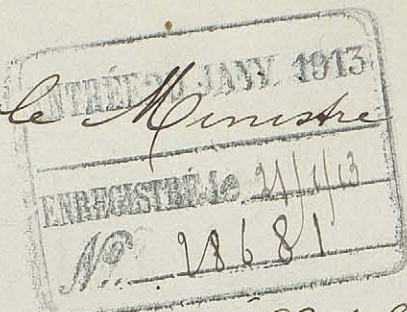 ENTRÉE JANV. 1913
le Ministre
ENREGISTRÉ le 21/1/13
No. 28681